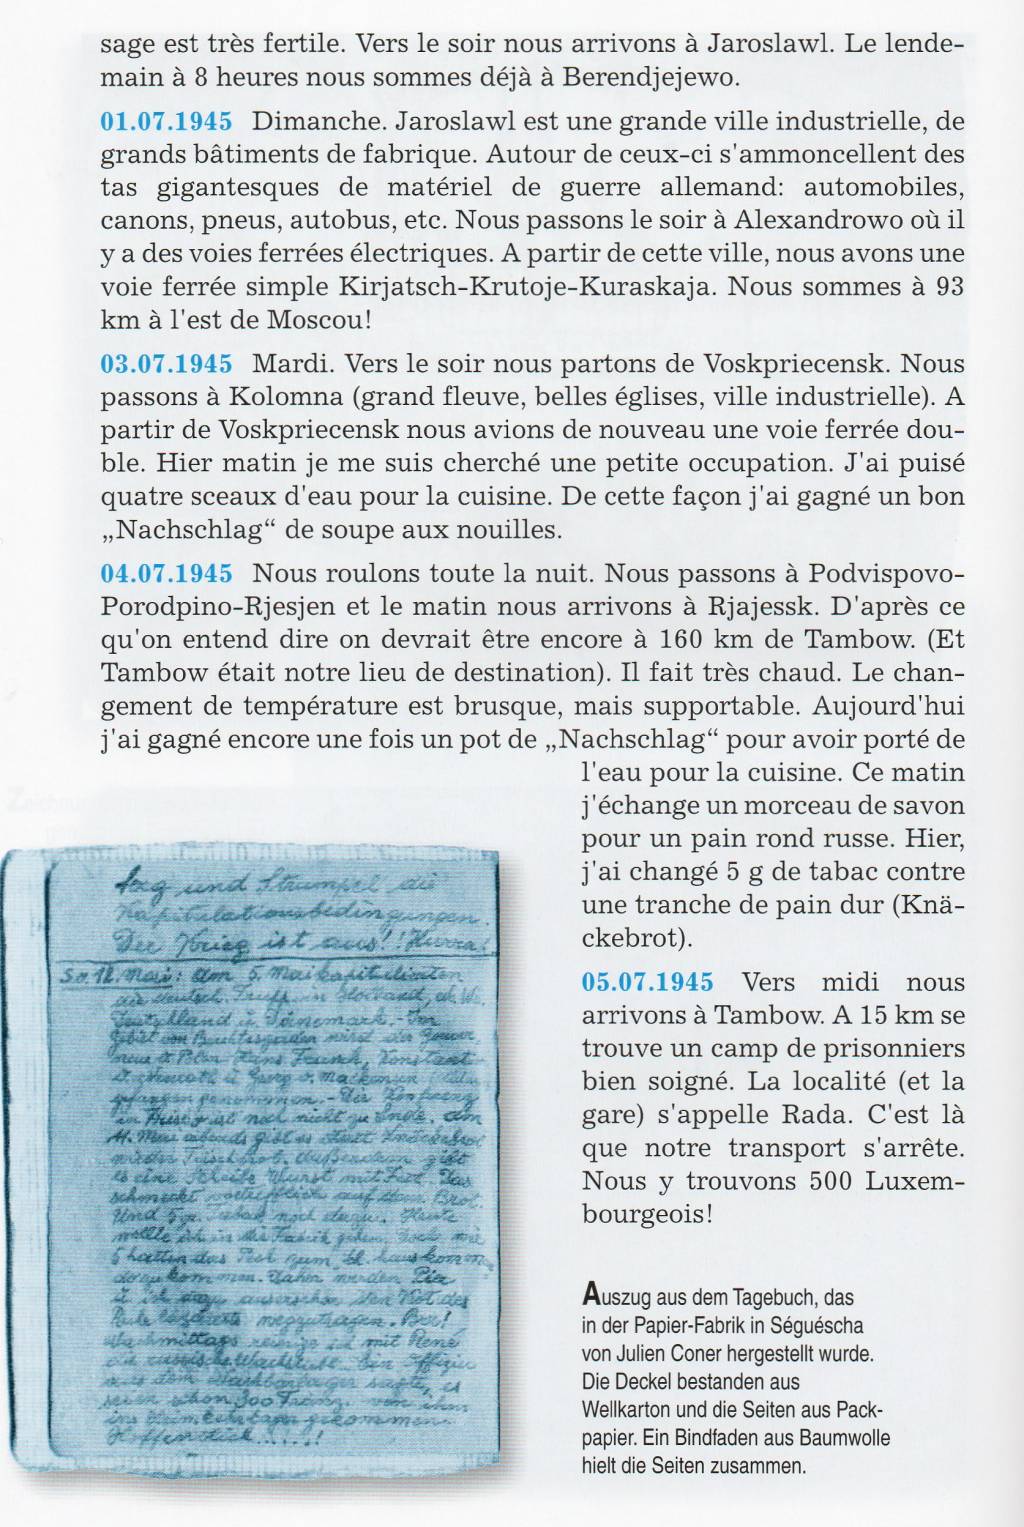 sage est très fertile. Vers le soir nous arrivons à Jaroslawl. Le lende-
main à 8 heures nous sommes déjà à Berendjejewo.
01.07.1945 Dimanche. Jaroslawl est une grande ville industrielle, de
grands bâtiments de fabrique. Autour de ceux-ci s'ammoncellent des
tas gigantesques de matériel de guerre allemand: automobiles,
canons, pneus, autobus, etc. Nous passons le soir à Alexandrowo où il
y a des voies ferrées électriques. A partir de cette ville, nous avons une
voie ferrée simple Kirjatsch-Krutoje-Kuraskaja. Nous sommes à 93
km à l'est de Moscou!
03.07.1945 Mardi. Vers le soir nous partons de Voskpriecensk. Nous
passons à Kolomna (grand fleuve, belles églises, ville industrielle). A
partir de Voskpriecensk nous avions de nouveau une voie ferrée dou-
ble. Hier matin je me suis cherché une petite occupation. J'ai puisé
quatre sceaux d'eau pour la cuisine. De cette façon j'ai gagné un bon
„Nachschlag“ de soupe aux nouilles.
04.07.1945 Nous roulons toute la nuit. Nous passons à Podvispovo-
Porodpino-Rjesjen et le matin nous arrivons à Rjajessk. D'après ce
qu'on entend dire on devrait être encore à 160 km de Tambow. (Et
Tambow était notre lieu de destination). Il fait très chaud. Le chan-
gement de température est brusque, mais supportable. Aujourd'hui
j'ai gagné encore une fois un pot de „Nachschlag“ pour avoir porté de
l'eau pour la cuisine. Ce matin
j'échange un morceau de savon
pour un pain rond russe. Hier,
j'ai changé 5 g de tabac contre
une tranche de pain dur (Knä-
ckebrot).
05.07.1945 Vers midi nous
arrivons à Tambow. A 15 km se
trouve un camp de prisonniers
bien soigné. La localité (et la
gare) s'appelle Rada. C'est là
que notre transport s'arrête.
Nous y trouvons 500 Luxem-
bourgeois!
und Strumpel die
Kapitulationsbedingungen.
Der Krieg ist aus!! Hurra!
So. 12. Mai: Am 5. Mai kapitulierten
die deutsch. in Holland,
Deutschland u. Dänemark.
gefangen genommen. - Die
ist noch nicht zu Ende. Am
11. Mai abends gibt es statt Knäckebrot
wieder Frischbrot. Außerdem gibt
es eine Scheibe Wurst mit Fett. Das
schmeckt vortrefflich auf dem Brot.
Und 5 gr. Tabak noch dazu. Heute
wollte ich in die Fabrik gehen. Doch wir
Nachmittags reinige ich mit René
die russische Wachstube. Ein Offizier
aus dem Nachbarlager sagte, es
seien schon 300 Franz. von ihm
ins gekommen.
Hoffentlich.....!!
Auszug aus dem Tagebuch, das
in der Papier-Fabrik in Séguéscha
von Julien Coner hergestellt wurde.
Die Deckel bestanden aus
Wellkarton und die Seiten aus Pack-
papier. Ein Bindfaden aus Baumwolle
hielt die Seiten zusammen.